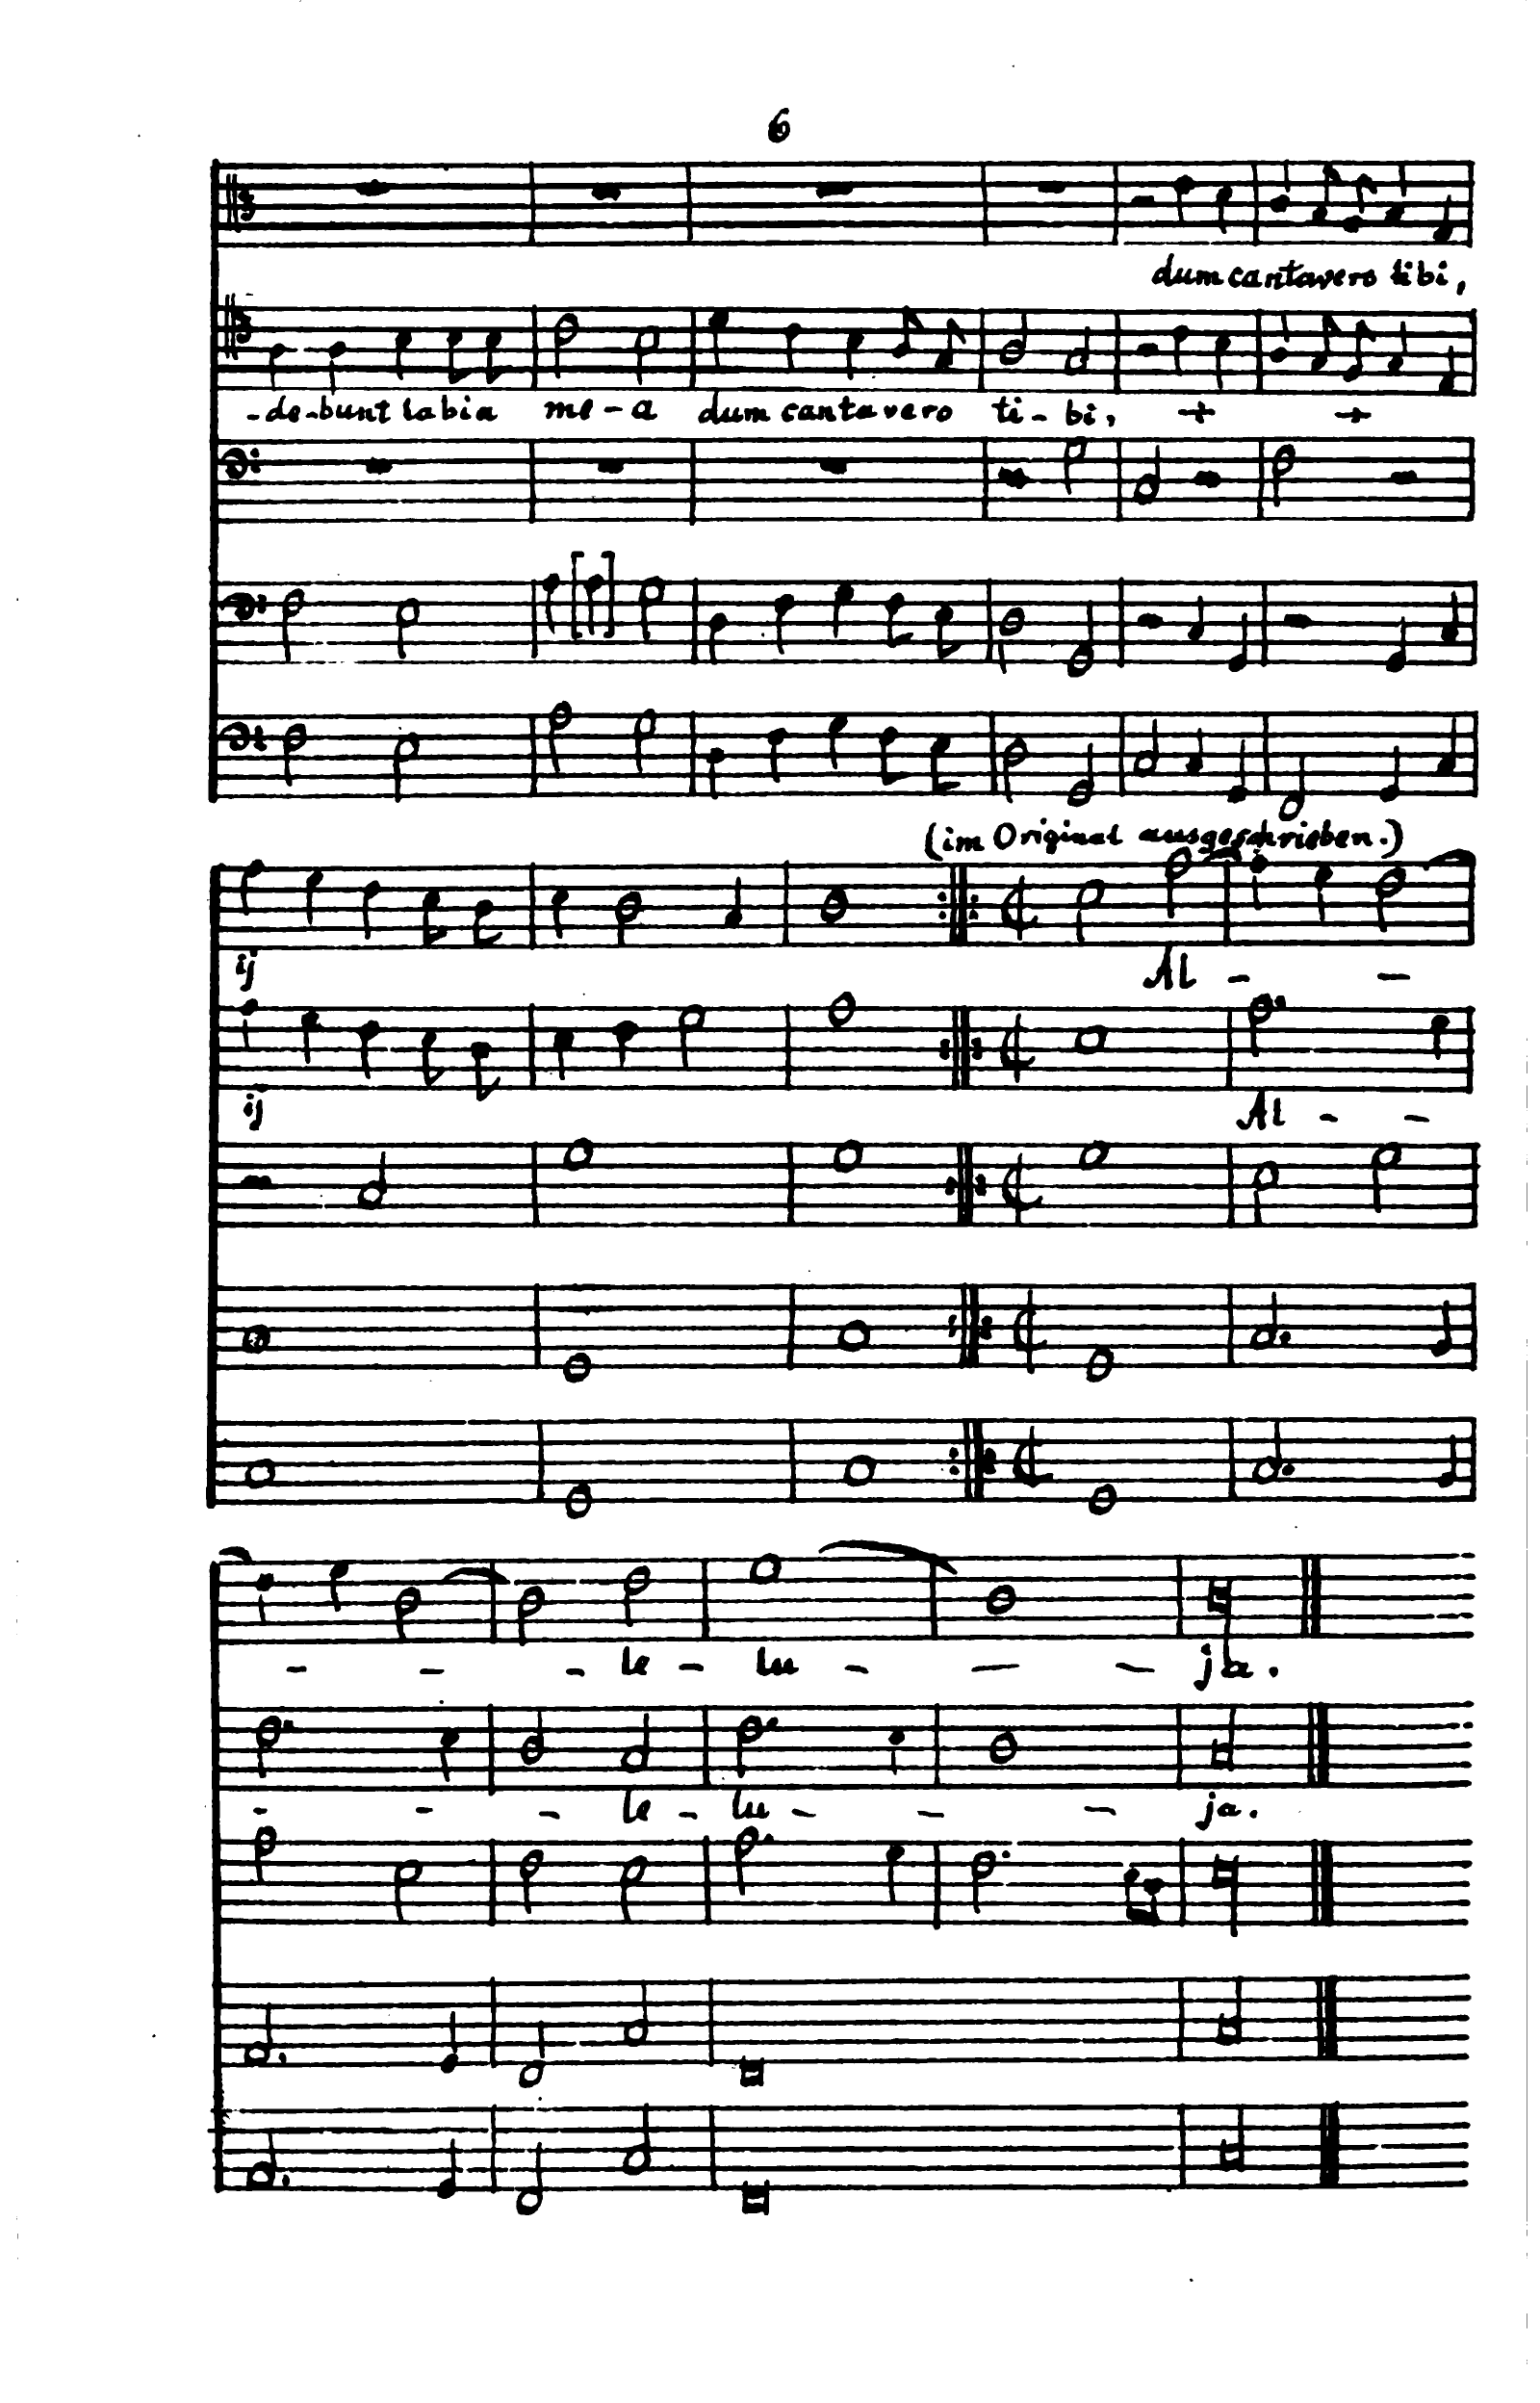 6
dum cantavero tibi,
-de-bunt labia me-a dum cantavero ti-bi, + +
(im Original ausgeschrieben.)
ij Al - -
ij Al - -
- - - le - lu - - - ja.
- - - le - lu - - - ja.